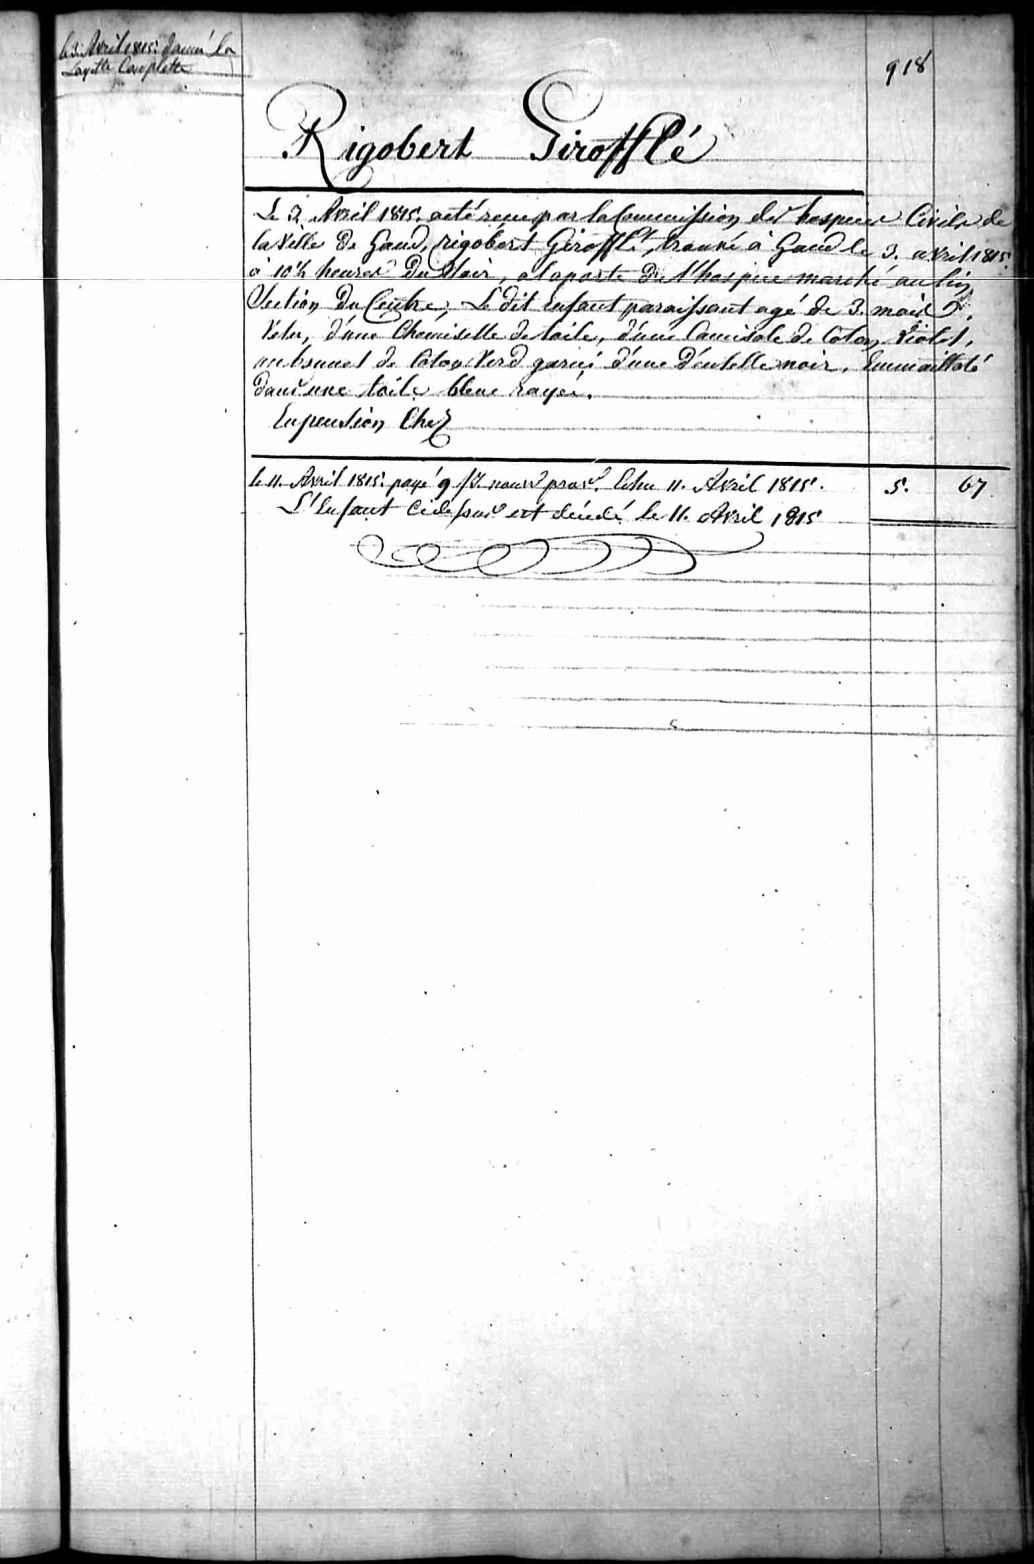 le 3. Avril 1815. donné la
Layette Complette
918
Rigobert Girofflé
Le 3. Avril 1815. a eté recu par la Commission des hospices Civils de
la Ville de Gand, rigobert Girofflé, trouvé à Gand le 3. avril 1815
à 10½ heures Du Soir, a la porte De l'hospice marché au lin
Section Du Centre, Le dit enfant paraissant agé de 3. mois
Vetu, d'une Chemisette de toile, d'une Camisole de Coton Violet,
un bonnet de Coton Verd garni d'une Dentelle noir, Emmailloté
Dans une toile bleue rayée.
En pension Chez
le 11. Avril 1815. payé 9 pour Echu 11. Avril 1815. 5. 67
L'Enfant Cidessus est décédé le 11. Avril 1815